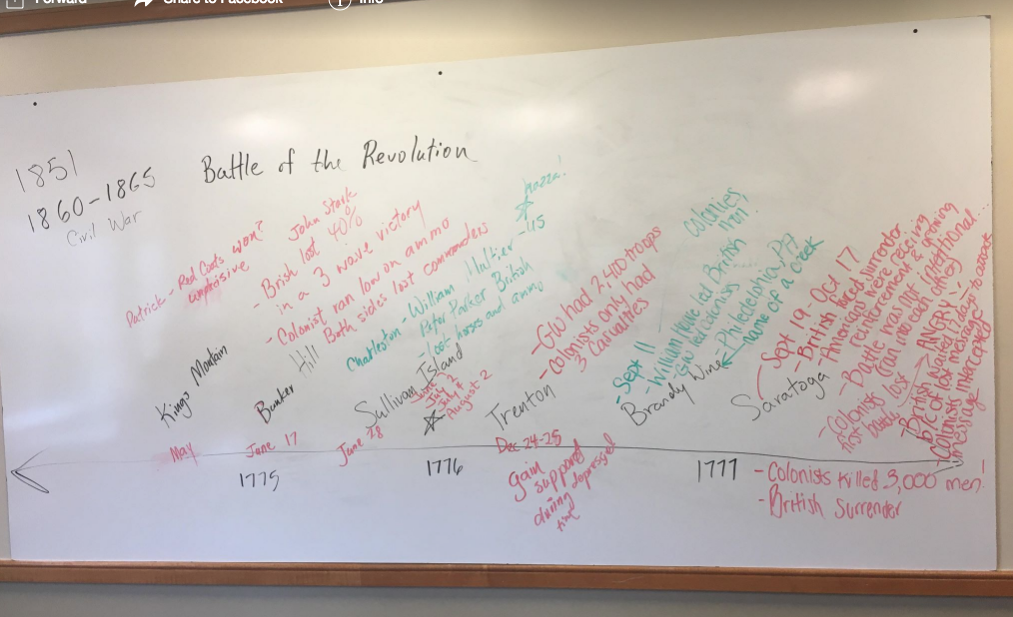 Forward
Share to Facebook
Info
1851
1860-1865
Civil War
Battle of the Revolution
Patrick - Red Coats won?
John Stark
- Brish lost 40%
in a 3 wave victory
- Colonist ran low on ammo
Both sides lost commanders
Charleston - William
Peter Parker British
- lost horses and ammo
huzza!
Kings Montain
Bunker Hill
Sullivan Island
July 2
July 4
August 2
Trenton
- GW had 2,400 troops
- colonists only had
3 Casualties
Brandy Wine
- Sept 11
- William Howe led British
- GW led colonists
- Philedelphia, PA
- name of a creek
Saratoga
Sept 19 - Oct 17
- British forced surrender
- Americans were receiving
reinforcement & growing
- Battle was not intentional
- Colonists lost
first battle
ANGRY!
- British waited days to assist
b/c of lost message
- Colonists intercepted
message
May
June 17
1775
June 28
1776
Dec 24-25
gain
support
during depressed
time
1777
- Colonists killed 3,000 men!
- British Surrender